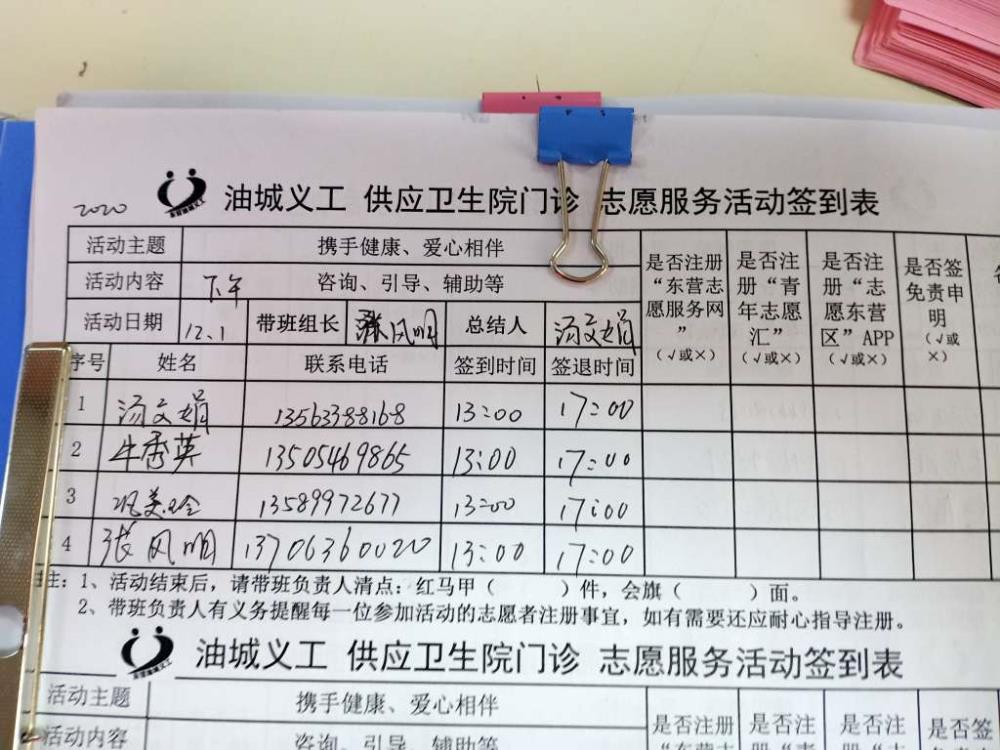 2020
油城义工 供应卫生院门诊 志愿服务活动签到表
活动主题 携手健康、爱心相伴 是否注册“东营志愿服务网”(√或×) 是否注册“青年志愿汇”(√或×) 是否注册“志愿东营区”APP(√或×) 是否签免责申明(√或×)
活动内容 下午 咨询、引导、辅助等
活动日期 12.1 带班组长 张风明 总结人 汤文娟
序号 姓名 联系电话 签到时间 签退时间
1 汤文娟 13563388168 13:00 17:00
2 牛秀英 13505469865 13:00 17:00
3 巩美玲 13589972677 13:00 17:00
4 张风明 13706360020 13:00 17:00
注：1、活动结束后，请带班负责人清点：红马甲（ ）件，会旗（ ）面。
2、带班负责人有义务提醒每一位参加活动的志愿者注册事宜，如有需要还应耐心指导注册。
油城义工 供应卫生院门诊 志愿服务活动签到表
活动主题 携手健康、爱心相伴 是否注册 是否注 是否注 是否签
活动内容 咨询、引导、辅助等